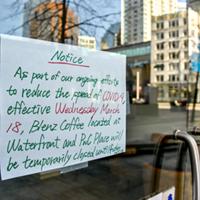 Notice
As part of our ongoing efforts
to reduce the spread of COVID-19,
effective Wednesday March
18, Blenz Coffee located at
Waterfront and Park Place will
be temporarily closed until